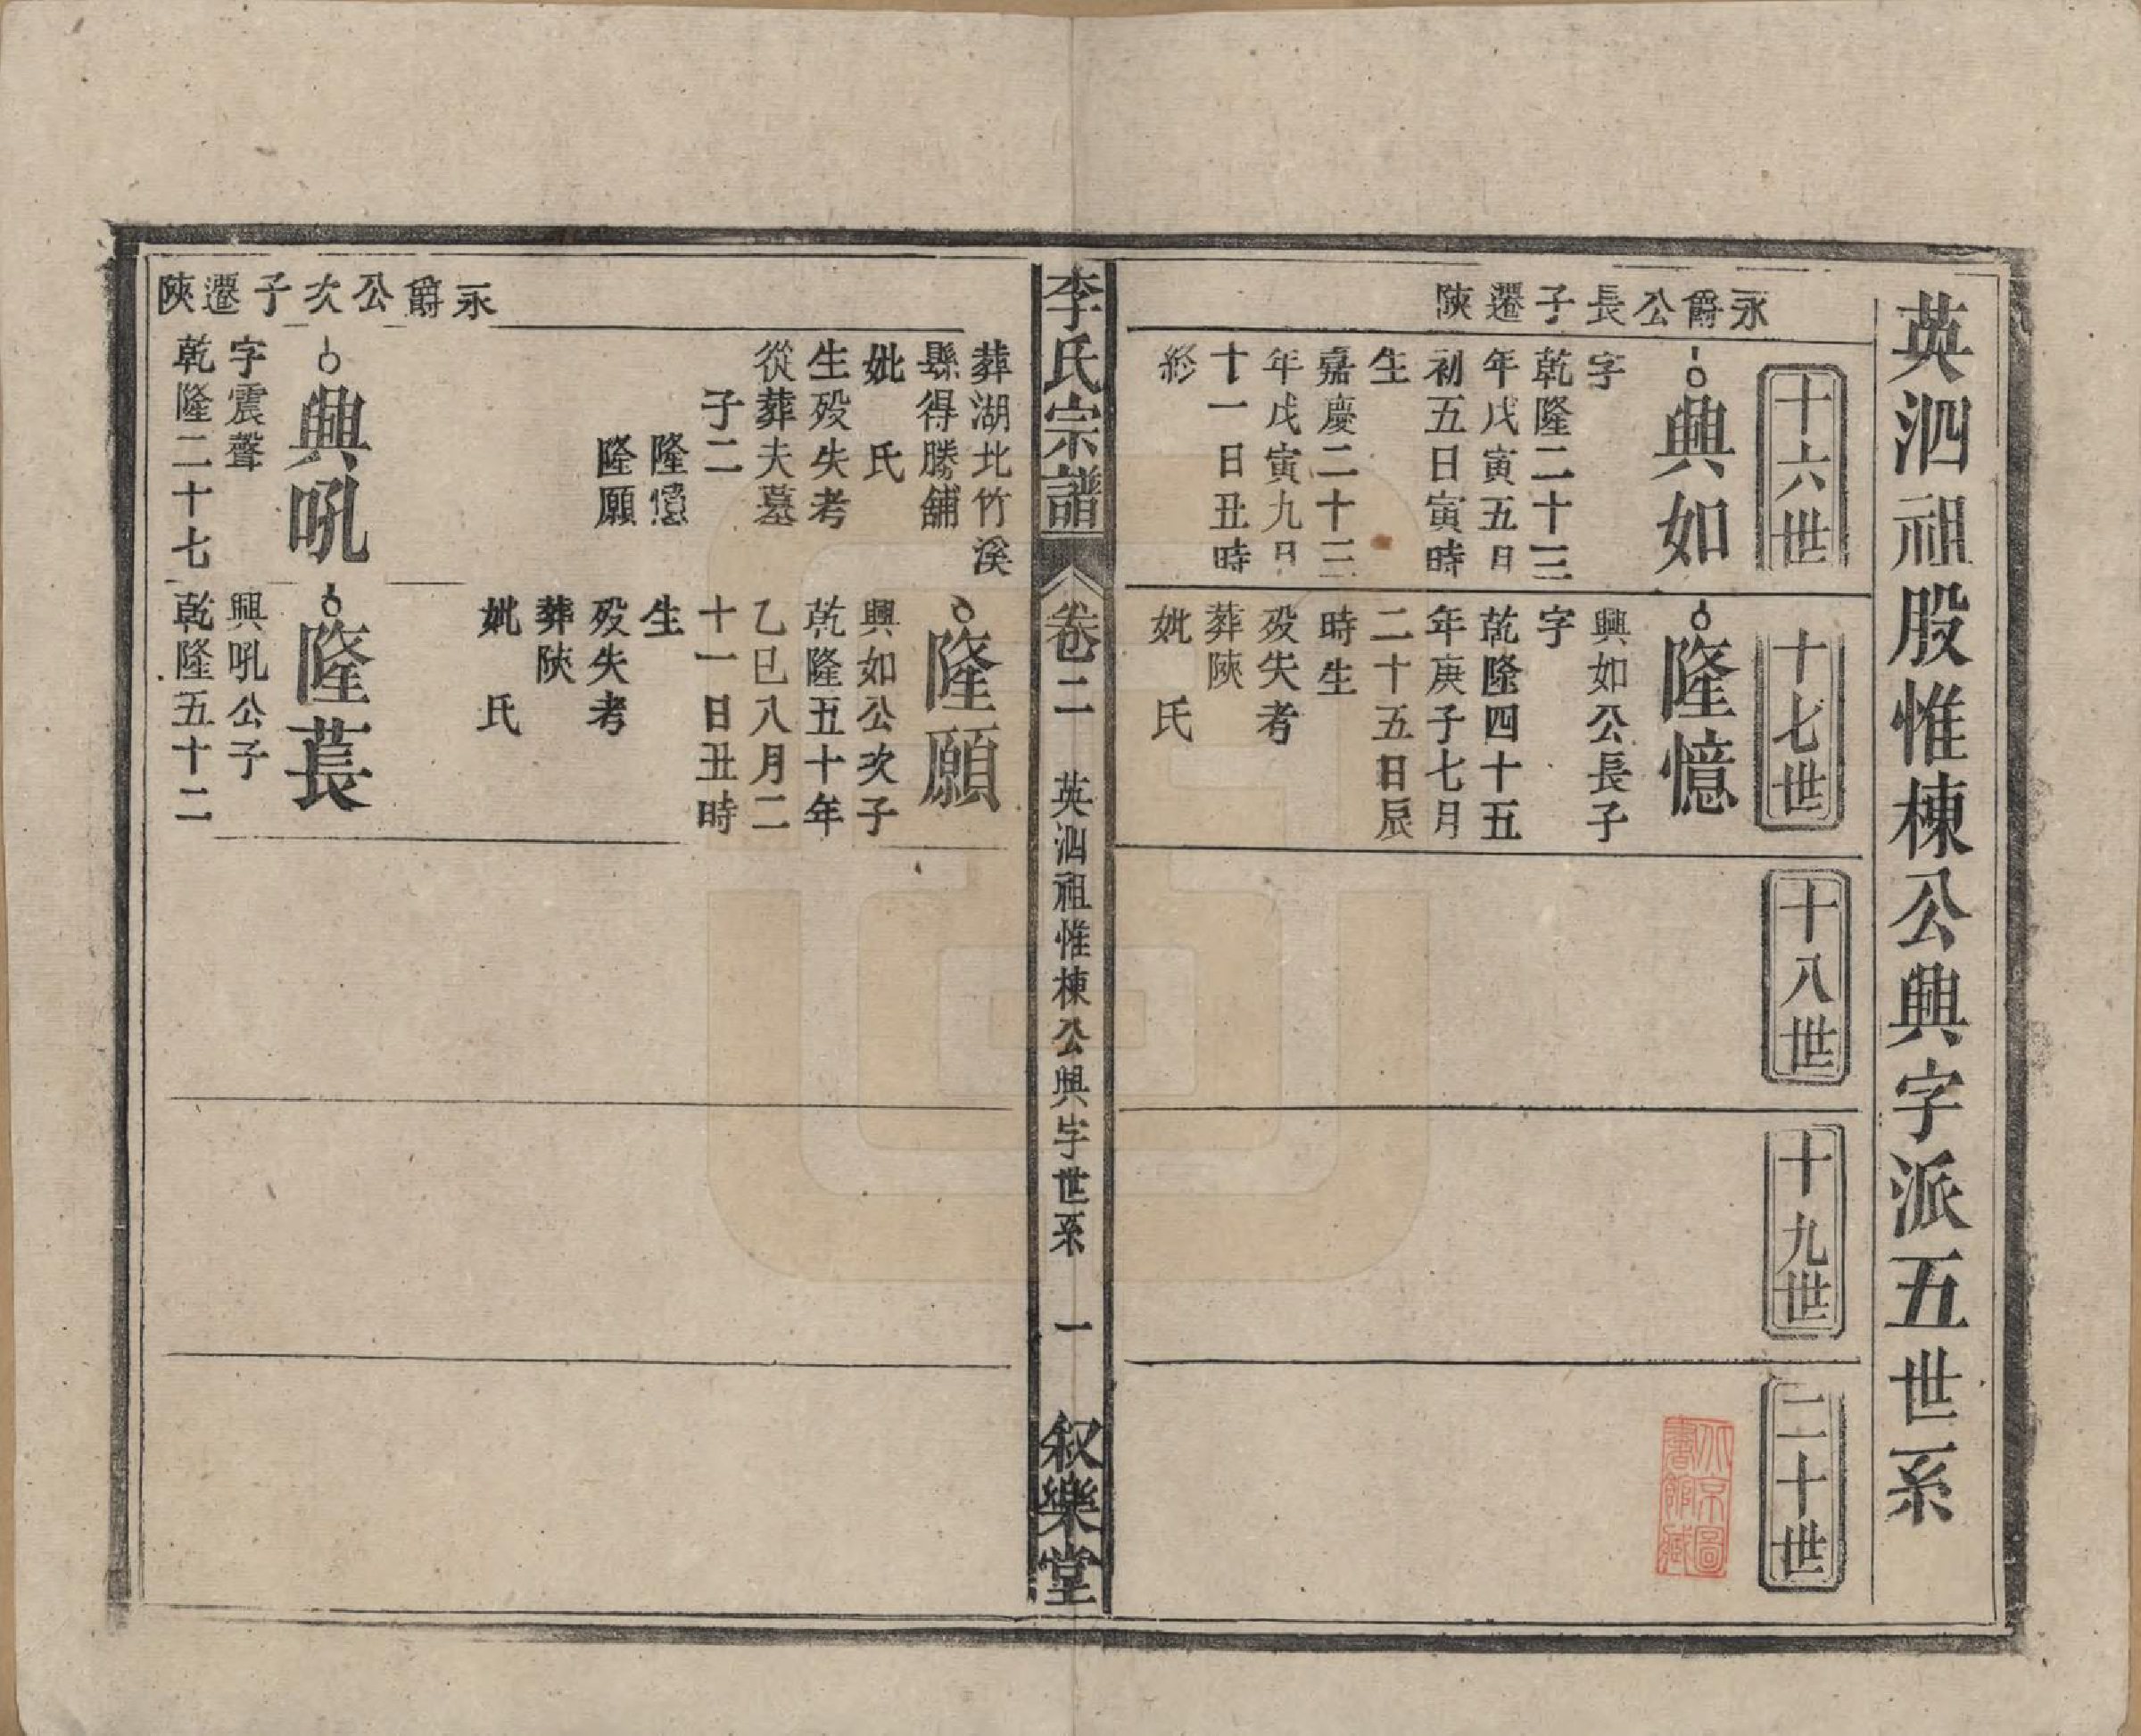 英泗祖股惟棟公興字派五世系
十六世
十七世
十八世
十九世
二十世
永爵公長子遷陝
興如
字
乾隆二十三
年戊寅五月
初五日寅時
生
嘉慶二十三
年戊寅九月
十一日丑時
終
隆憶
興如公長子
字
乾隆四十五
年庚子七月
二十五日辰
時生
歿失考
葬陝
妣　氏
李氏宗譜
卷二
英泗祖惟棟公興字世系
一
叙樂堂
葬湖北竹溪
縣得勝舖
妣　氏
生歿失考
從葬夫墓
子二
隆憶
隆願
隆願
興如公次子
乾隆五十年
乙巳八月二
十一日丑時
生
歿失考
葬陝
妣　氏
永爵公次子遷陝
興吼
字震聲
乾隆二十七
隆萇
興吼公子
乾隆五十二
北京圖
書館藏